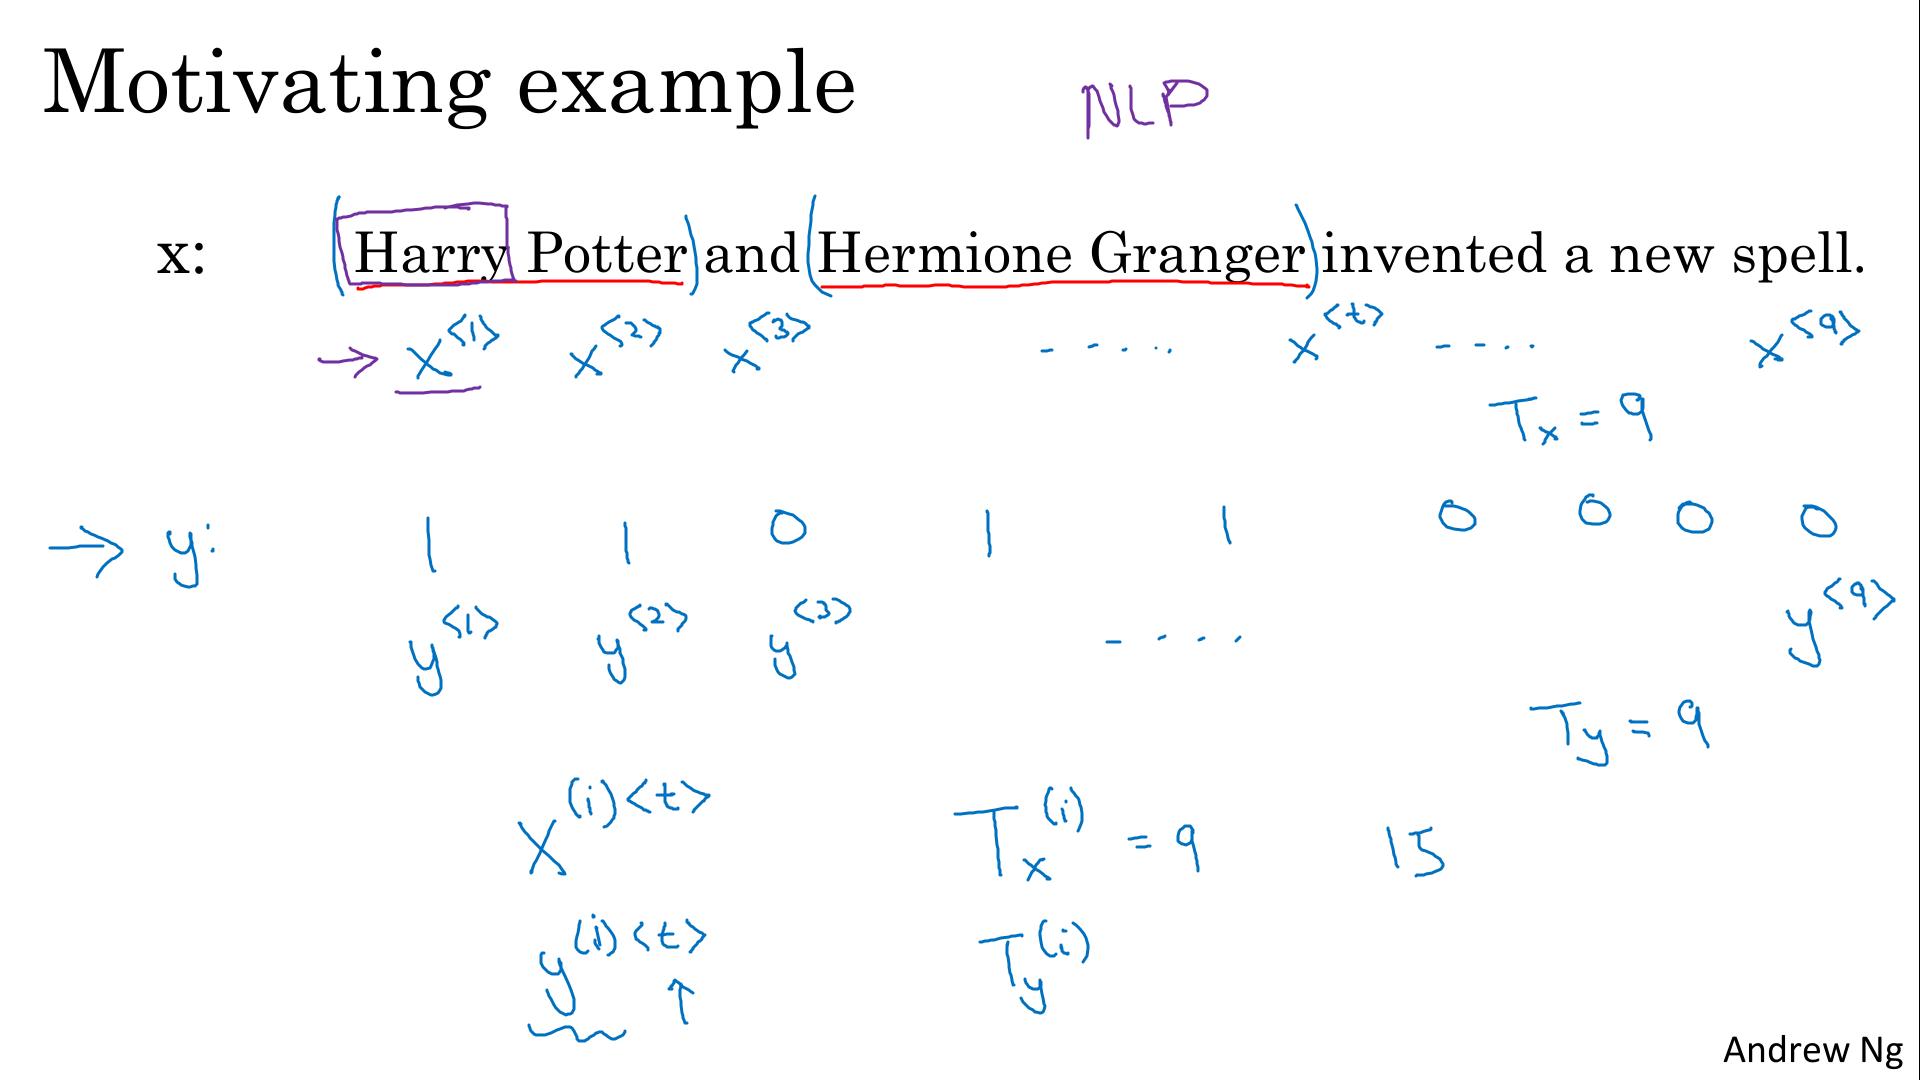 Motivating example NLP
x: (Harry Potter) and (Hermione Granger) invented a new spell.
→ x<1> x<2> x<3> - - . . . x<t> - - . . x<9>
Tx = 9
→ y: 1 1 0 1 1 0 0 0 0
y<1> y<2> y<3> - . . . y<9>
Ty = 9
X(i)<t> Tx(i) = 9 15
y(i)<t> Ty(i)
↑
Andrew Ng